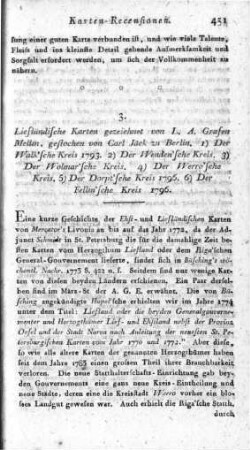 Karten-Recensionen. 451
sung einer guten Karte verbunden ist, und wie viele Talente,
Fleiſs und ins kleinſte Detail gehende Aufmerkſamkeit und
Sorgfalt erfordert werden, um ſich der Vollkommenheit zu
nähern.
3.
Lieſländiſche Karten gezeichnet von L. A. Grafen
Mellin, geſtochen von Carl Jäck zu Berlin, 1) Der
Walk'ſche Kreis 1793. 2) Der Wenden'ſche Kreis, 3)
Der Wolmar'ſche Kreis, 4) Der Werro'ſche
Kreis, 5) Der Dorpt'ſche Kreis 1796. 6) Der
Fellin'ſche Kreis 1796.
Eine kurze Geſchichte, der Ehſt- und Lieſländiſchen Karten
von Mercator's Livonia an bis auf das Jahr 1772, da der Ad-
junct Schmidt in St. Petersburg die für die damahlige Zeit be-
ſten Karten vom Herzogthum Liefland oder dem Riga'ſchen
General-Gouvernement lieferte, ſteht in Büſching's wö-
chentl. Nachr. 1773 S. 421 u. f. Seitdem ſind nur wenige Kar-
ten von dieſen beyden Ländern erſchienen. Ein Paar derſel-
ben ſind im März-St. der A. G. E. erwähnt. Die von Bü-
ſching angekündigten Hupel'ſche erſchienen im Jahre 1774 un-
ter dem Titel: Liefland oder die beyden Generalgouverne-
menter und Herzogthümer Lief- und Ehſtland nebſt der Provinz
Oeſel und der Stadt Narva nach Anleitung der neueſten St. Pe-
tersburgiſchen Karten vom Jahr 1770 und 1772." Aber dieſe,
ſo wie alle ältere Karten der genannten Herzogthümer haben
ſeit dem Jahre 1783 einen groſsen Theil ihrer Brauchbarkeit
verloren. Die neue Statthalterſchafts-Einrichtung gab bey-
den Gouvernements eine ganz neue Kreis-Eintheilung und
neue Städte, deren eine die Kreisſtadt Werro vorher ein bloſ-
ſes Landgut geweſen war. Auch erhielt die Riga'ſche Statth.
durch